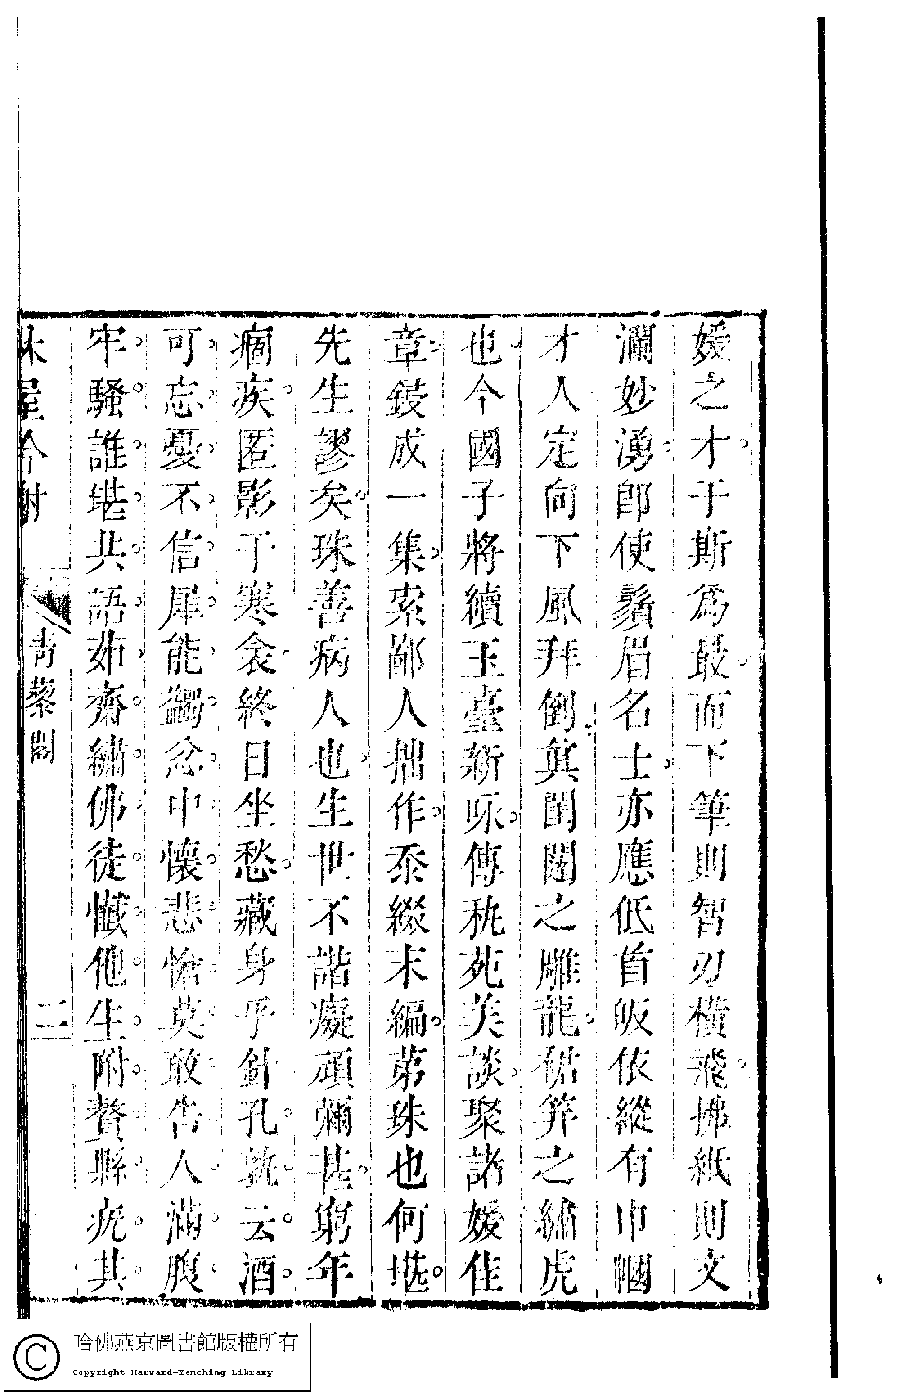 媛之才于斯爲最而下筆則智刃橫飛拂紙則文
瀾妙湧郎使鬚眉名士亦應低首皈依縱有巾幗
才人定向下風拜倒眞閨閣之雕龍裙笄之繡虎
也今國子將續玉臺新咏傳秇苑美談聚諸媛佳
章鋟成一集索鄙人拙作忝綴末編苐珠也何堪
先生謬矣珠善病人也生世不諧癡頑彌甚窮年
痼疾匿影于寒衾終日坐愁藏身乎針孔孰云酒
可忘憂不信犀能蠲忿中懷悲慘莫敢告人滿腹
牢騷誰堪共語茹齋繡佛徒懺他生附贅縣疣其
林屋吟榭
青藜閣
二
哈佛燕京圖書館版權所有
Copyright Harvard-Yenching Library